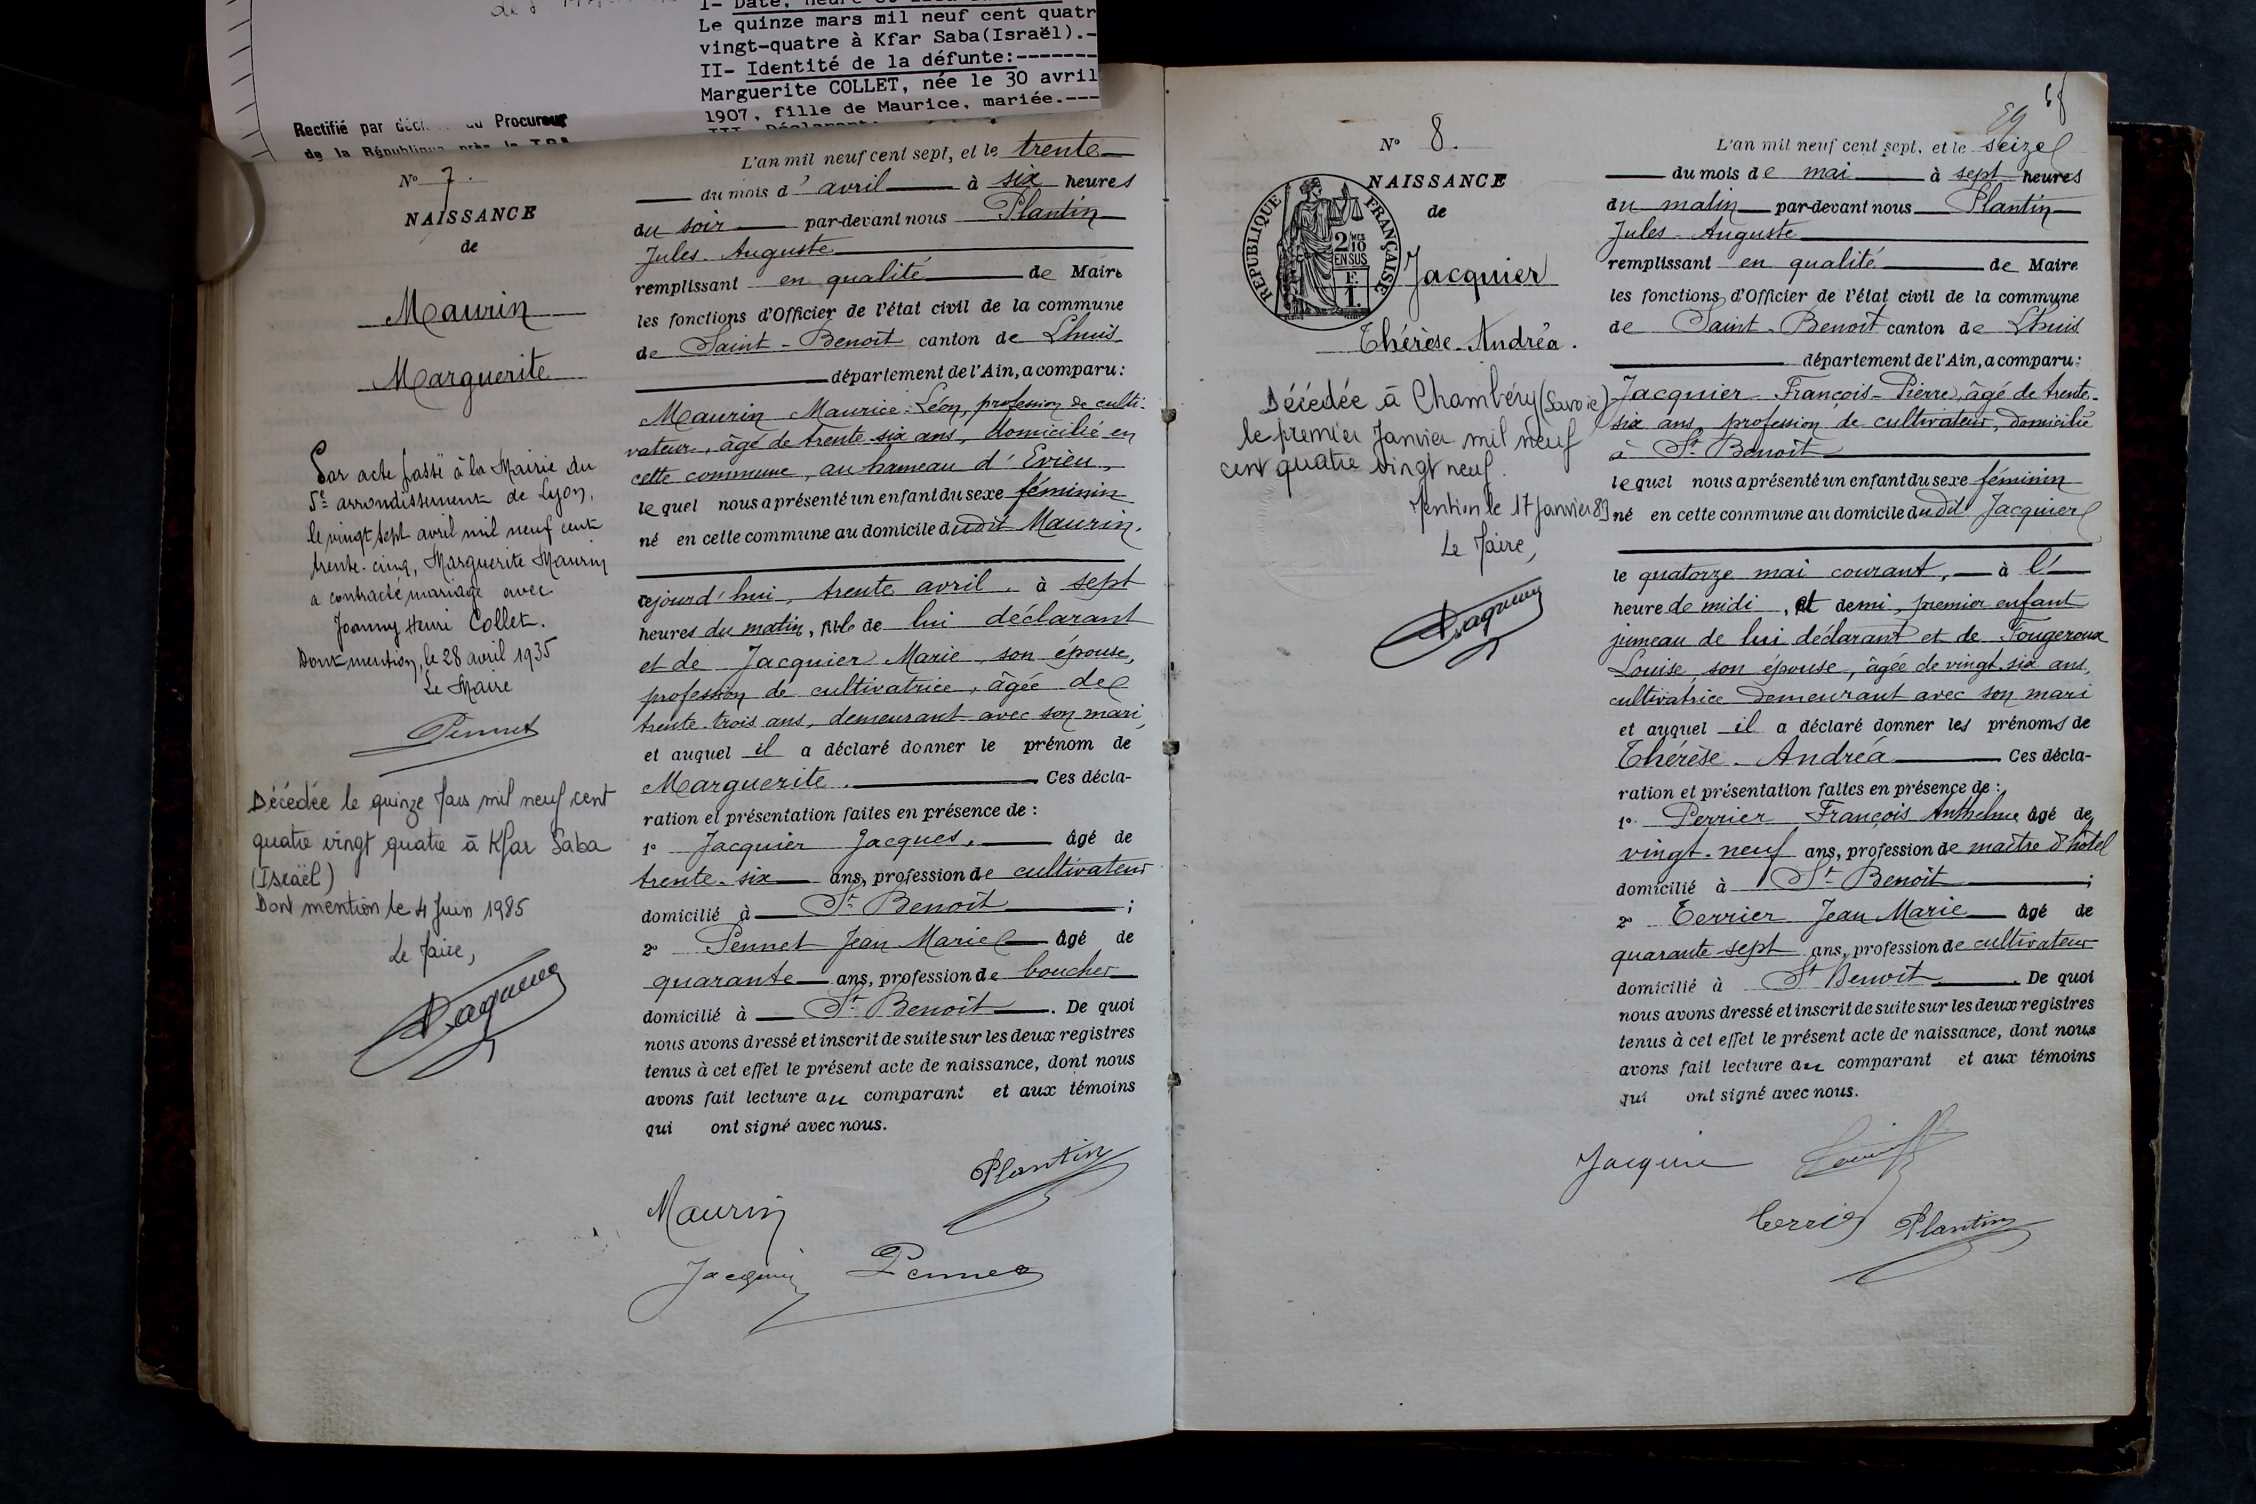 Le quinze mars mil neuf cent quatr
vingt-quatre à Kfar Saba(Israël).-
II- Identité de la défunte:-------
Marguerite COLLET, née le 30 avril
1907, fille de Maurice, mariée.---
Rectifié par du Procureur
de la République près le T.G.
N° 7.
NAISSANCE
de
Maurin
Marguerite
Par acte passé à la Mairie du
5e arrondissement de Lyon,
le vingt sept avril mil neuf cent
trente-cinq, Marguerite Maurin
a contracté mariage avec
Joanny Henri Collet.
Dont mention, le 28 avril 1935
Le Maire
Pennet
Décédée le quinze Mars mil neuf cent
quatre vingt quatre à Kfar Saba
(Israël)
Dont mention le 4 Juin 1985
Le Maire,
L'an mil neuf cent sept, et le trente
du mois d'avril à six heures
du soir par-devant nous Plantin
Jules-Auguste
remplissant en qualité de Maire
les fonctions d'Officier de l'état civil de la commune
de Saint-Benoît canton de Lhuis
département de l'Ain, a comparu:
Maurin Maurice-Léon, profession de culti-
vateur, âgé de trente-six ans, domicilié en
cette commune, au hameau d'Evieu,
lequel nous a présenté un enfant du sexe féminin
né en cette commune au domicile dudit Maurin.
cejourd'hui, trente avril, à sept
heures du matin, fille de lui déclarant
et de Jacquier Marie son épouse,
profession de cultivatrice, âgée de
trente-trois ans, demeurant avec son mari,
et auquel il a déclaré donner le prénom de
Marguerite. Ces décla-
ration et présentation faites en présence de :
1° Jacquier Jacques, âgé de
trente-six ans, profession de cultivateur
domicilié à St Benoît ;
2° Pennet Jean Marie âgé de
quarante ans, profession de boucher
domicilié à St Benoît. De quoi
nous avons dressé et inscrit de suite sur les deux registres
tenus à cet effet le présent acte de naissance, dont nous
avons fait lecture au comparant et aux témoins
qui ont signé avec nous.
Plantin
Maurin
Jacquier Pennet
N° 8.
NAISSANCE
de
REPUBLIQUE FRANÇAISE
2 MES
10
EN SUS
F.
1.
Jacquier
Thérèse-Andréa.
Décédée à Chambéry (Savoie)
le premier Janvier mil neuf
cent quatre vingt neuf.
Mention le 17 Janvier 89
Le Maire,
L'an mil neuf cent sept, et le seize
du mois de mai à sept heures
du matin par-devant nous Plantin
Jules-Auguste
remplissant en qualité de Maire
les fonctions d'Officier de l'état civil de la commune
de Saint-Benoît canton de Lhuis
département de l'Ain, a comparu:
Jacquier François-Pierre, âgé de trente-
six ans, profession de cultivateur, domicilié
à St Benoît
lequel nous a présenté un enfant du sexe féminin
né en cette commune au domicile dudit Jacquier
le quatorze mai courant, à l'
heure de midi, et demi, premier enfant
jumeau de lui déclarant et de Fougeroux
Louise, son épouse, âgée de vingt-six ans,
cultivatrice demeurant avec son mari
et auquel il a déclaré donner les prénoms de
Thérèse-Andréa Ces décla-
ration et présentation faites en présence de :
1° Perrier François Anthelme âgé de
vingt-neuf ans, profession de maître d'hôtel
domicilié à St Benoît ;
2° Terrier Jean Marie âgé de
quarante-sept ans, profession de cultivateur
domicilié à St Benoît. De quoi
nous avons dressé et inscrit de suite sur les deux registres
tenus à cet effet le présent acte de naissance, dont nous
avons fait lecture au comparant et aux témoins
qui ont signé avec nous.
Jacquier
Terrier Plantin